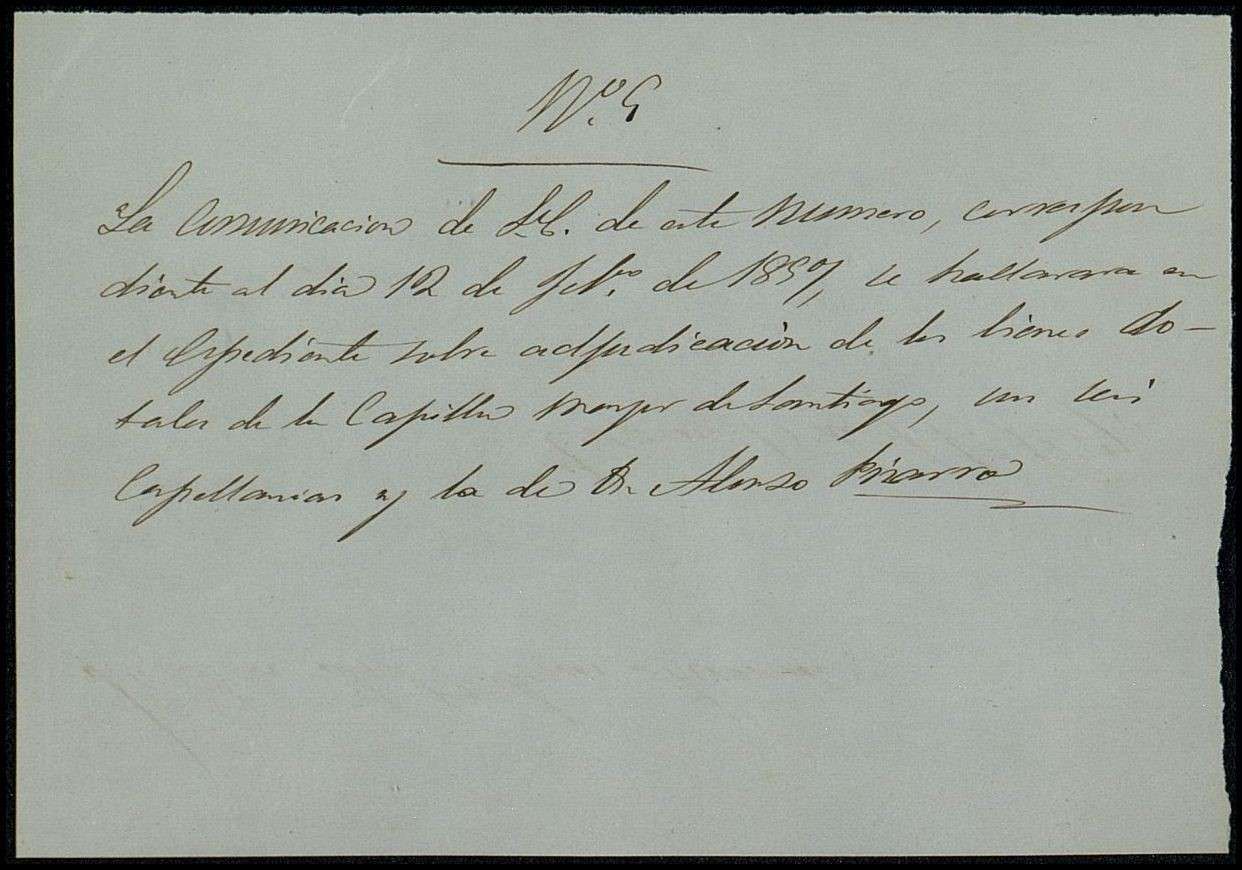 Nº. 5
La Comunicacion de S.E. de este Numero, correspon
diente al dia 12 de Feb.º de 1857, se hallarara en
el Espediente sobre adjudicación de los bienes do-
tales de la Capilla mayor de Santiago, sus seis
Capellanias y la de Dn. Alonso Pizarro